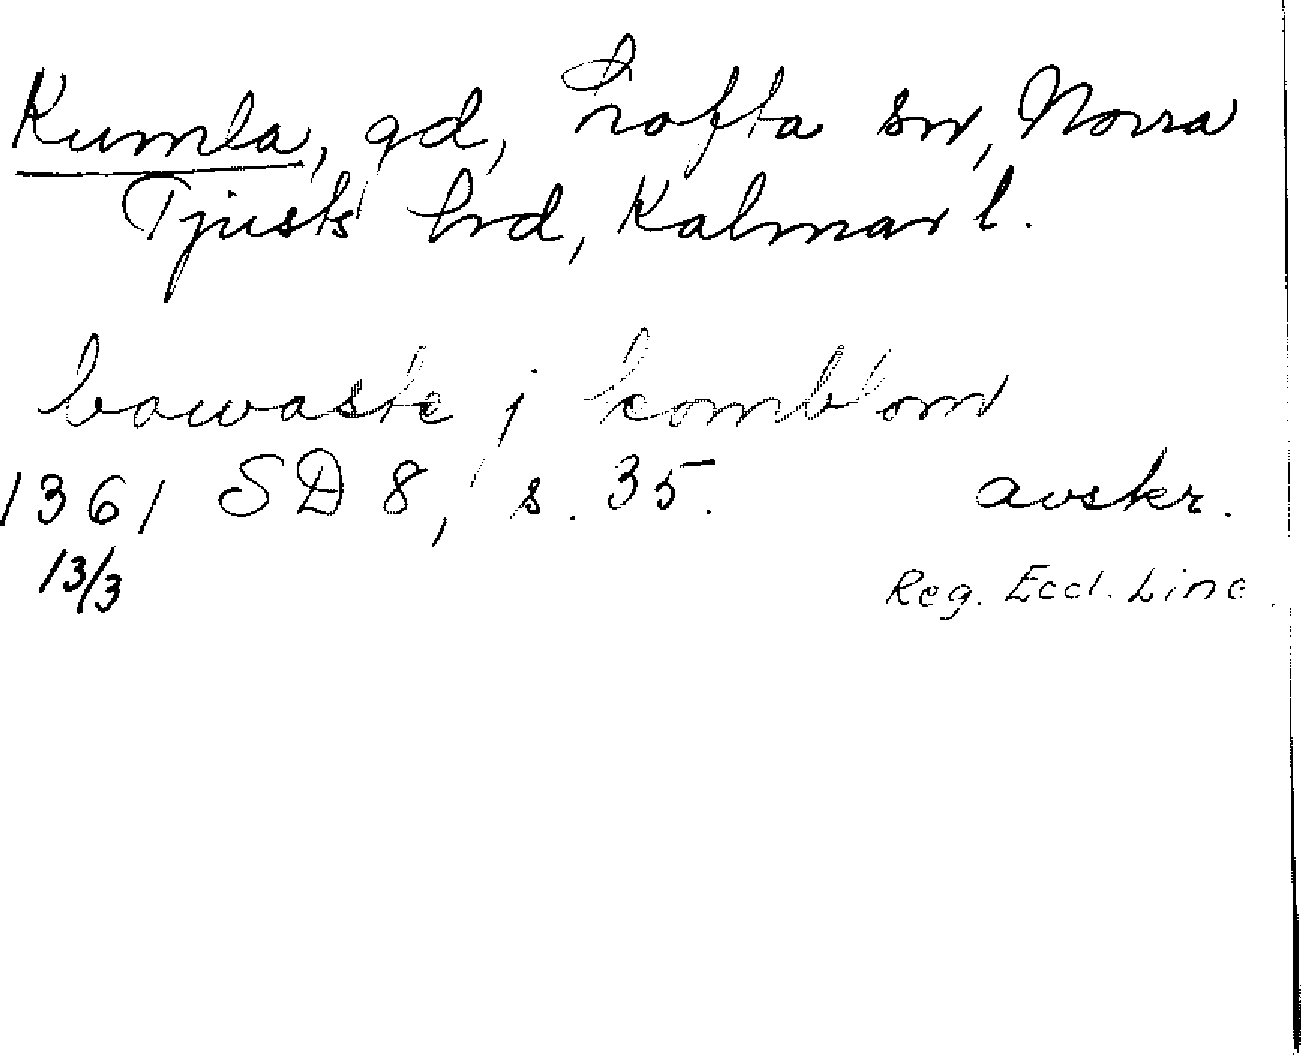 Kumla, gd, Lofta sn, Norra
Tjusts hrd, Kalmar l.
bowaste j komblom
1361 SD 8, s. 35. avskr.
13/3 Reg. Eccl. Linc.